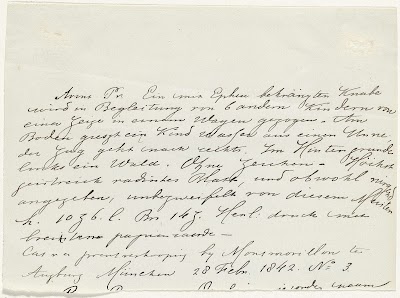 Anm Pr Ein mit Epheu bekränzten Knabe
wird in Begleitung von 6 andern Kindern von
einer Ziege in einem Wagen gezogen - Am
Boden giesst ein Kind Wasser aus einer Urne
der Zug geht nach rechts. Im Hintergrunde
links ein Wald. Ohne Zeichen - Höchst
geistreich radirtes Blatt, und obwohl nirgends
angegeben, unbezweifelt von diesem Meister
h. 10 z 6. l. Br 14 z. Herrl. druck
breitem papierrande -
Cat v prentverkoop by Montmorillon te
Augburg München 28 Febr. 1842. No 3.